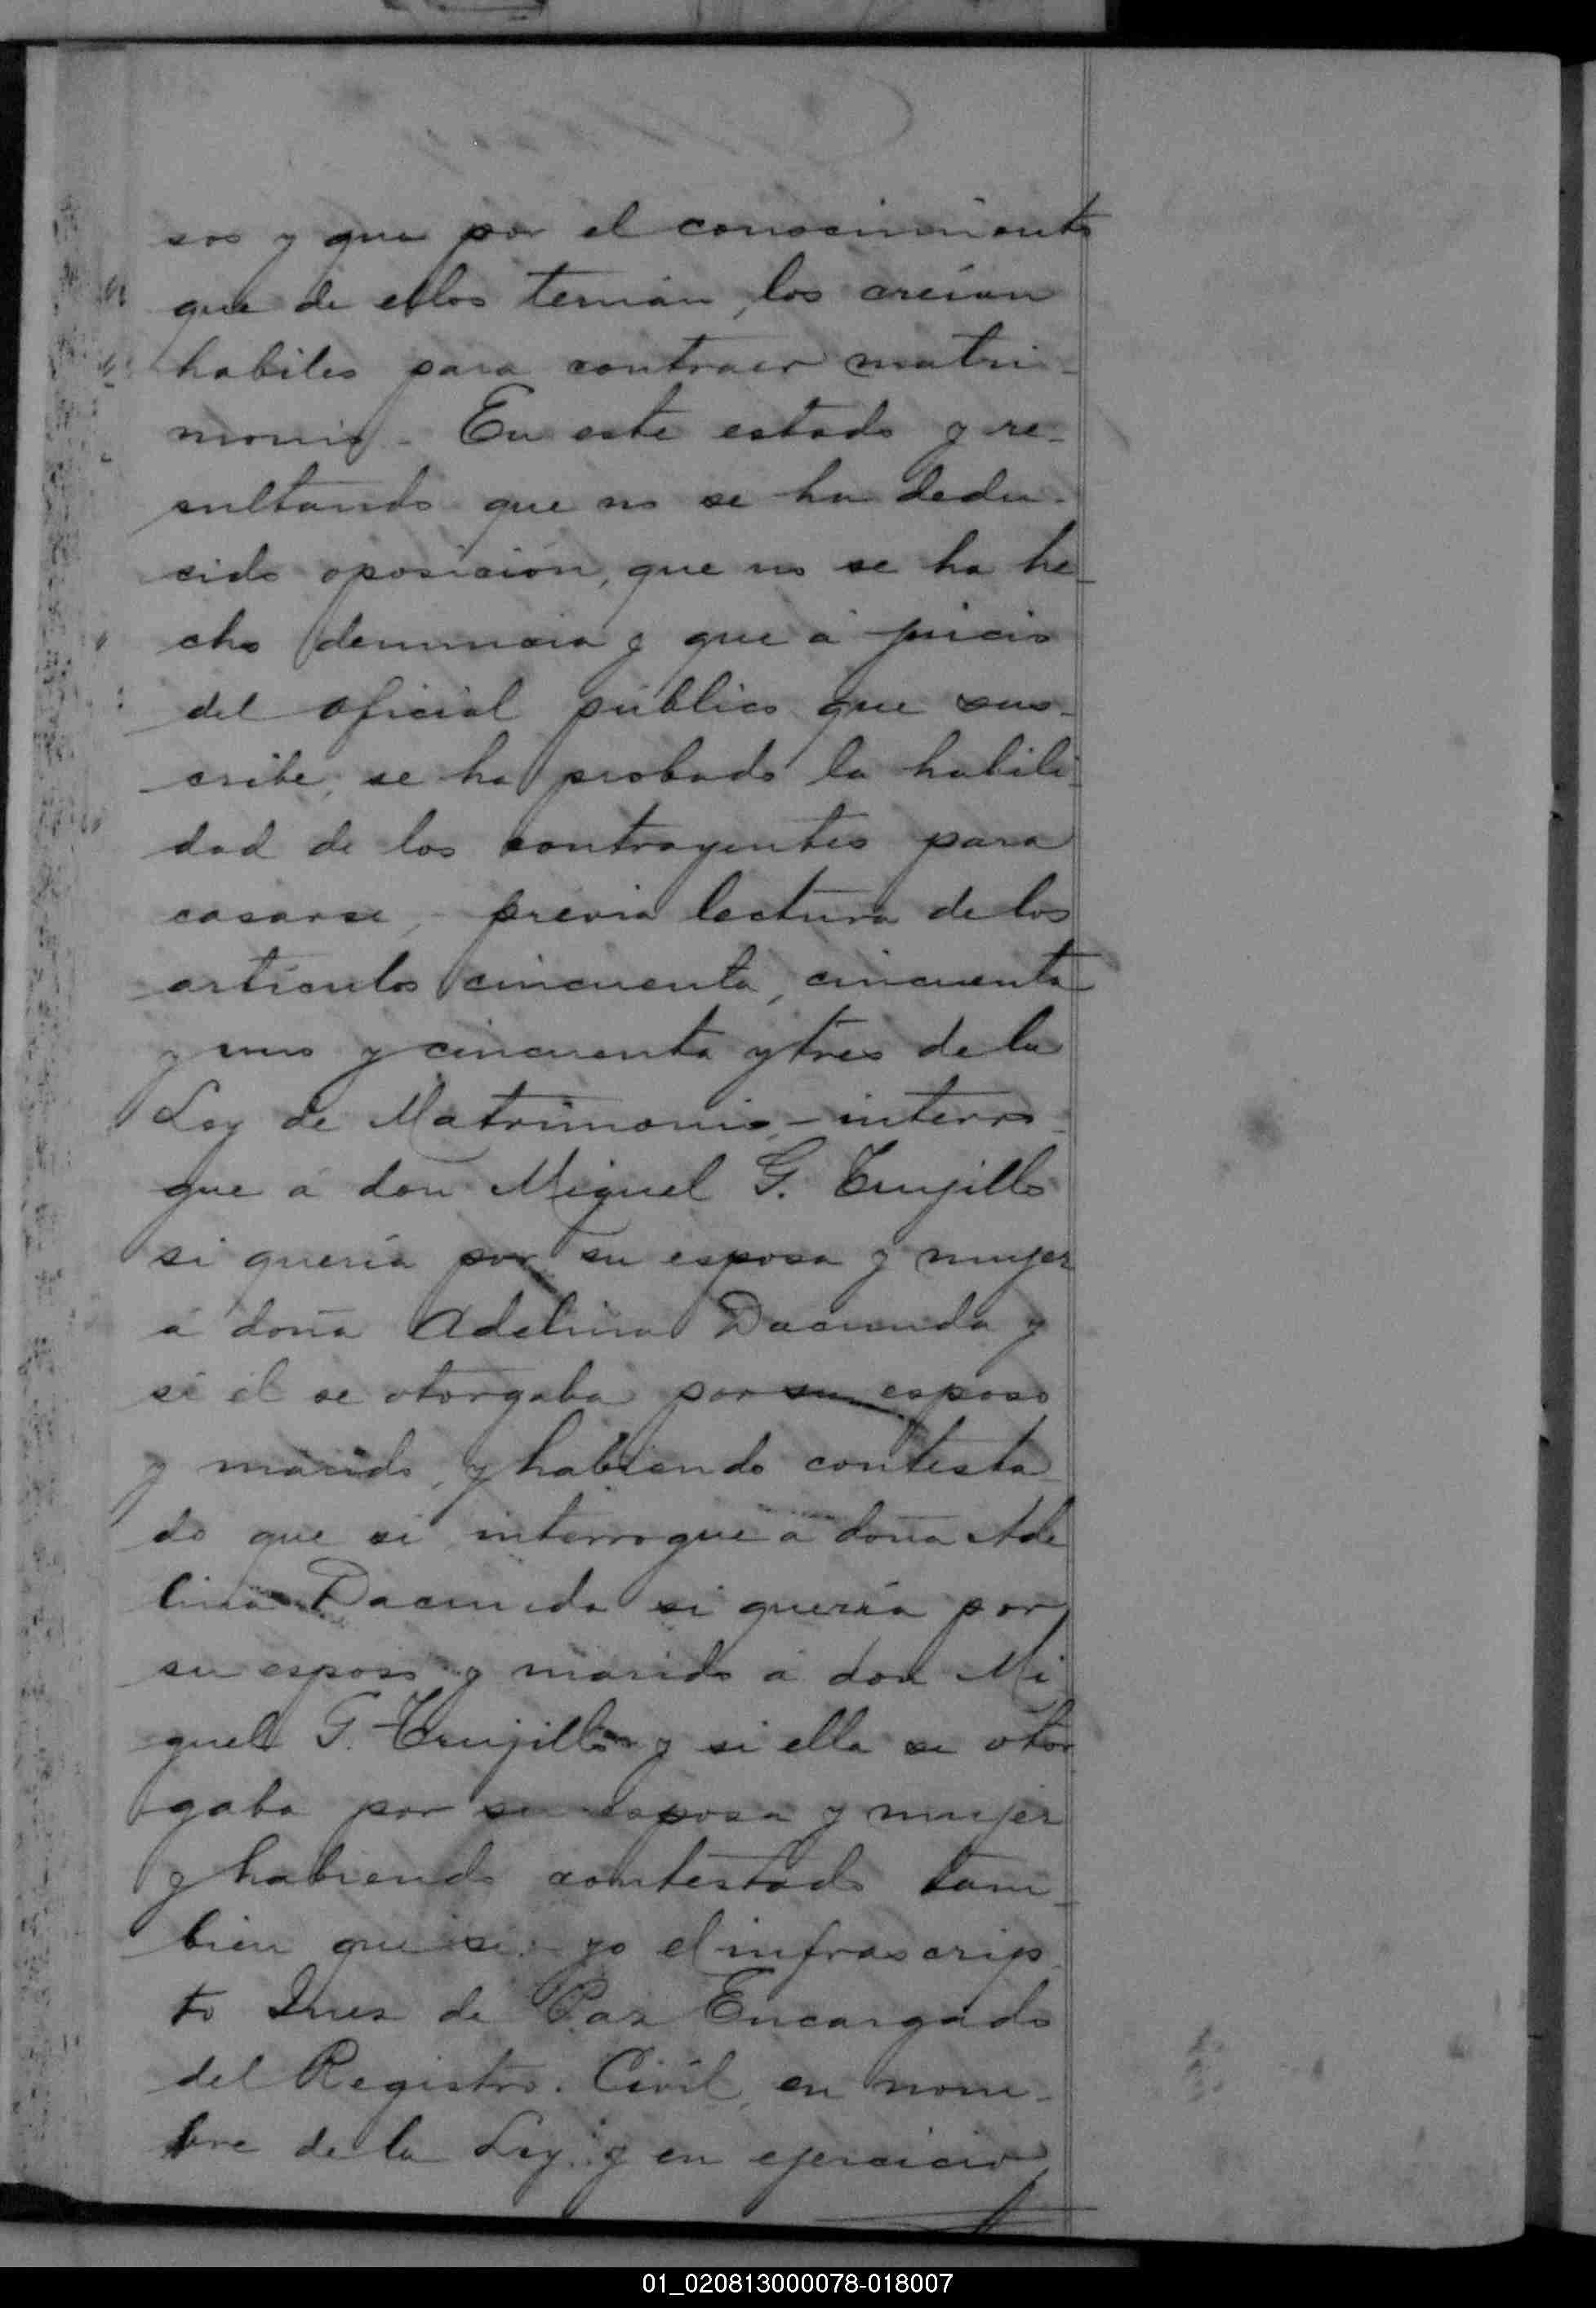 sos y que por el conocimiento
que de ellos tenian, los creían
habiles para contraer matri-
monio - En este estado y re-
sultando que no se ha dedu-
cido oposición, que no se ha he-
cho denuncia y que á juicio
del oficial público que sus-
cribe, se ha probado la habili-
dad de los contrayentes para
casarse, - prévia lectura de los
artículos cincuenta, cincuenta
y uno y cincuenta y tres de la
Ley de Matrimonio - interro-
que á don Miguel G. Trujillo
si quería por su esposa y mujer
á doña Adelina Dacunda y
si él se otorgaba por su esposo
y marido, y habiendo contesta-
do que si interroque á doña Ade
lina Dacunda si quería por
su esposo y marido á don Mi
guel G. Trujillo y si ella se otor
gaba por su esposa y mujer
y habiendo contestado tam-
bien que si - yo el infrascrip-
to Juez de Paz Encargado
del Registro Civil, en nom-
bre de la Ley y en ejercicio
01_020813000078-018007